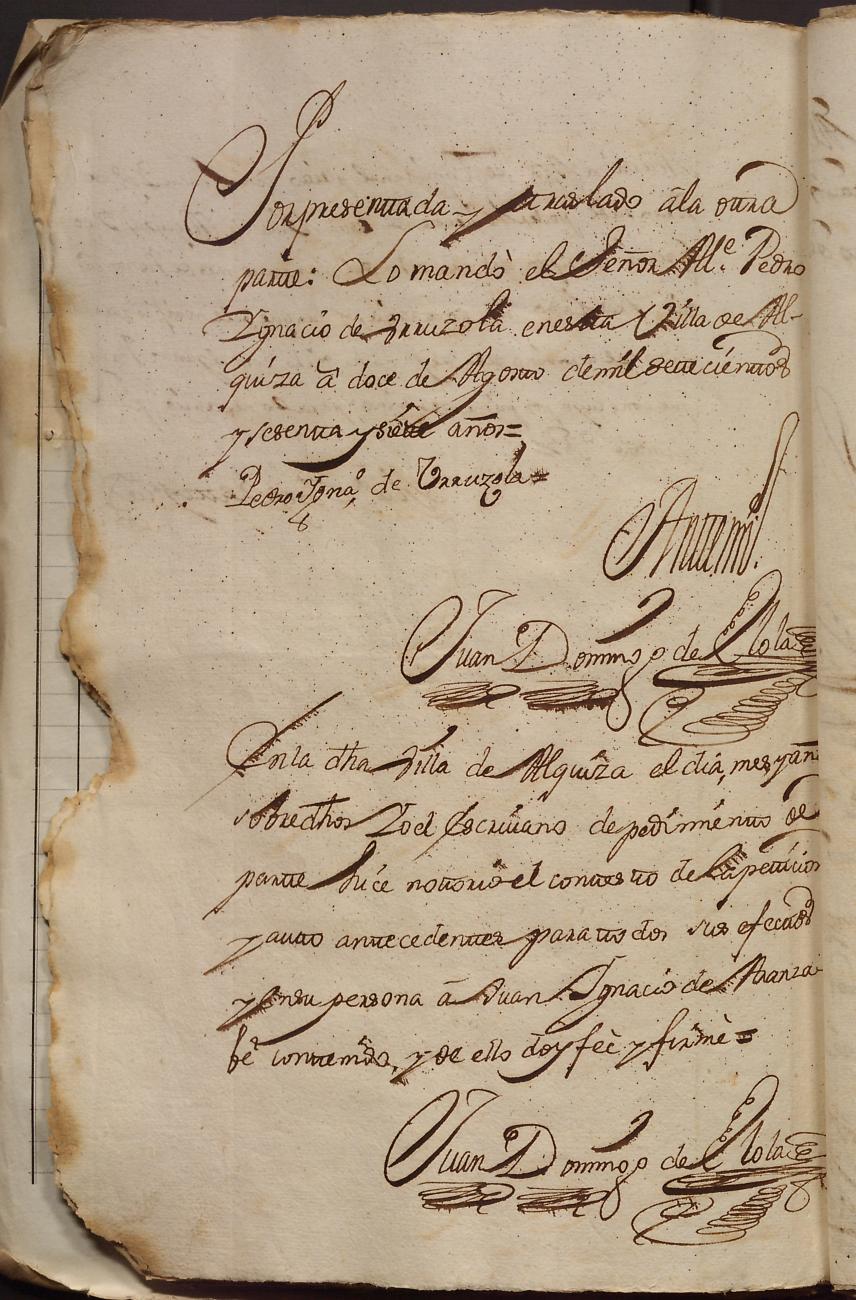 Por presentada y traslado â la otra
parte: Lo mandò el Señor Alle. Pedro
Ygnacio de Yrruzola en esta Villa de Al-
quiza â doce de Agosto de mil setecientos
y sesenta y siete años=
Pedro Ygnaº. de Yrruzola=
Antemi.
Juan Domingo de Elola
En la dha Villa de Alquiza el dia, mes y añ
sobredhos Yo el Escrivano de pedimento de
parte hice notorio el contesto de la peticion
y auto antecedentes para todos sus efectos
y en su persona â Juan Ygnacio de Aranza-
be contenido, y de ello doy feè y firmè=
Juan Domingo de Elola